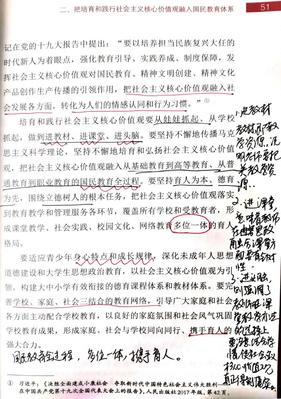 二、把培育和践行社会主义核心价值观融入国民教育体系
51
记在党的十九大报告中提出：“要以培养担当民族复兴大任的
时代新人为着眼点，强化教育引导、实践养成、制度保障，发
挥社会主义核心价值观对国民教育、精神文明创建、精神文化
产品创作生产传播的引领作用，把社会主义核心价值观融入社
会发展各方面，转化为人们的情感认同和行为习惯。”①
培育和践行社会主义核心价值观要从娃娃抓起、从学校
抓起，做到进教材、进课堂、进头脑。要坚持不懈地传播马克
思主义科学理论，坚持不懈地培育和弘扬社会主义核心价值
观，把社会主义核心价值观融入从基础教育到高等教育、从普
通教育到职业教育的国民教育全过程。要坚持育人为本、德育
为先，围绕立德树人的根本任务，把社会主义核心价值观落实
到教育教学和管理服务各环节，覆盖所有学校和受教育者，形
成课堂教学、社会实践、校园文化、网络教育多位一体的育人
格局。
要适应青少年身心特点和成长规律，深化未成年人思想
道德建设和大学生思想政治教育，以社会主义核心价值观为引
领，构建大中小学有效衔接的德育课程体系和教材体系。要完
善学校、家庭、社会三结合的教育网络，引导广大家庭和社会
各方面主动配合学校教育，以良好的家庭氛围和社会风气巩固
学校教育成果，形成家庭、社会与学校同向同行、携手育人的
强大合力。
国民教育全过程，多位一体，携手育人。
① 习近平：《决胜全面建成小康社会 夺取新时代中国特色社会主义伟大胜利——
在中国共产党第十九次全国代表大会上的报告》，人民出版社2017年版，第42页。
1.进教材
2.进课堂
3.进头脑